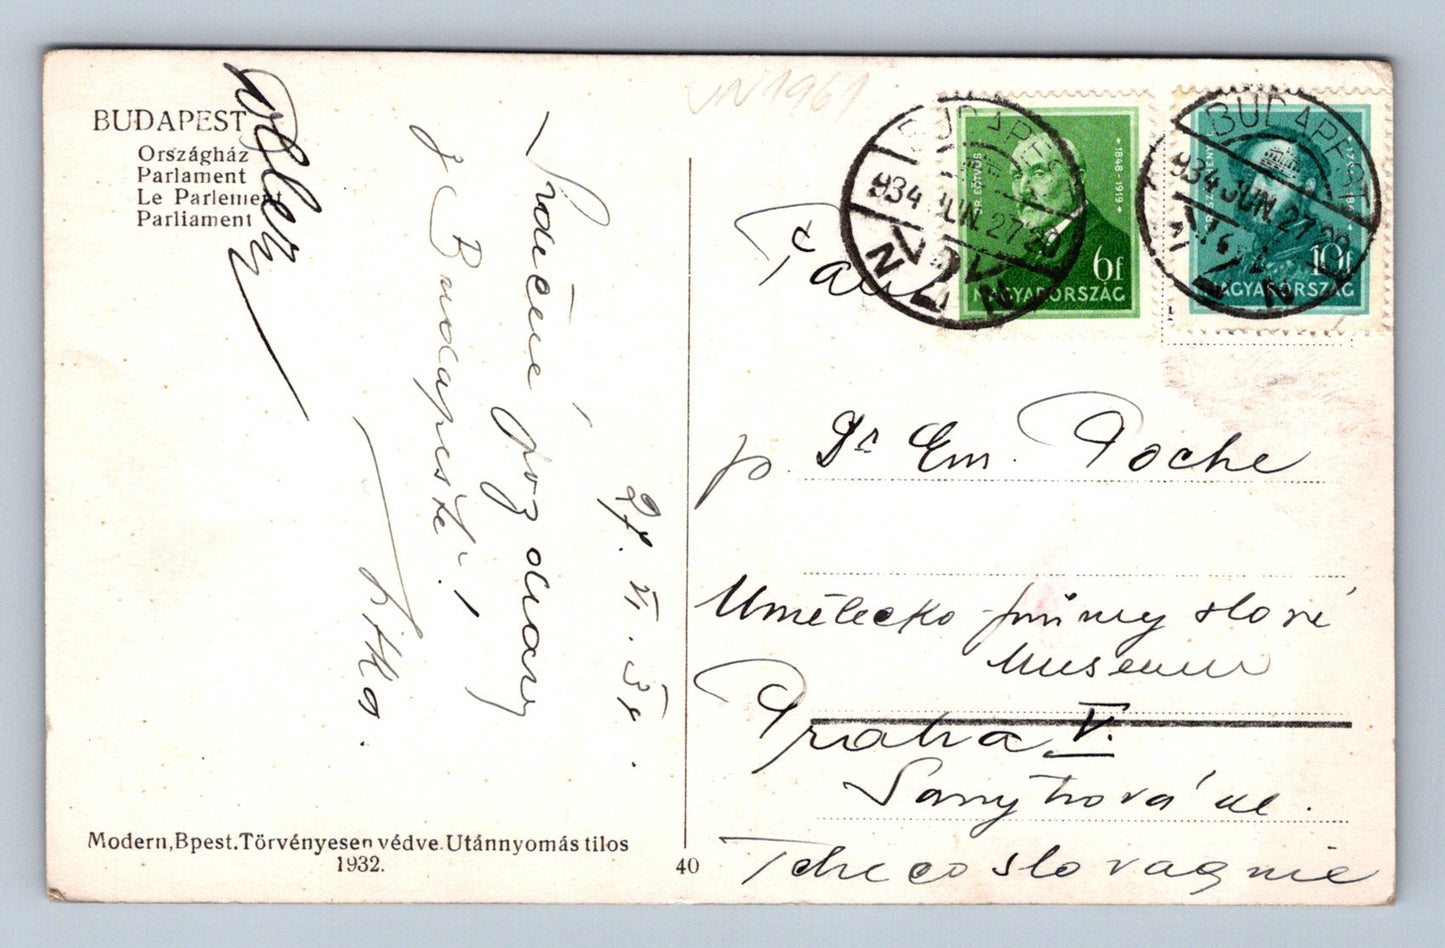 BUDAPEST
Országház
Parlament
Le Parlement
Parliament
Srdečné pozdravy
z Budapešti!
Jitka.
27. VI. 34.
VN1961
BUDAPEST
934 JUN. 27 20
6f
MAGYARORSZÁG
1848-1919
BUDAPEST
934 JUN. 27 20
10f
MAGYARORSZÁG
Pan
p. Dr Em. Poche
Umělecko-průmyslové
Museum
Praha V.
Sanytrová ul.
Tchecoslovaquie
Modern, Bpest. Törvényesen védve. Utánnyomás tilos
1932.
40